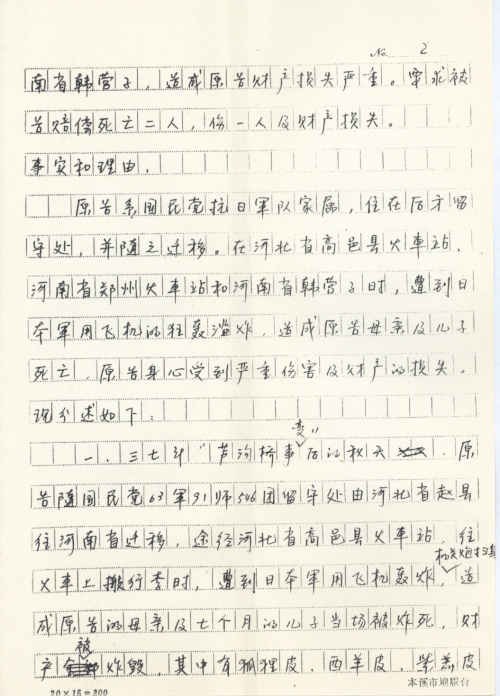 No. 2
南省韩营子，造成原告财产损失严重。要求被
告赔偿死亡二人，伤一人及财产损失。
事实和理由．
原告系国民党抗日军队家属，住在后方留
守处，并随之迁移。在河北省高邑县火车站、
河南省郑州火车站和河南省韩营子时，遭到日
本军用飞机的狂轰滥炸，造成原告母亲及儿子
死亡，原告身心受到严重伤害及财产的损失。
现分述如下：
一．三七年"芦沟桥事变"后的秋天．原
告随国民党63军91师546团留守处由河北省赵县
往河南省迁移，途经河北省高邑县火车站，往
火车上搬行李时，遭到日本军用飞机轰炸，机关炮扫射，造
成原告的母亲及七个月的儿子当场被炸死，财
产被炸毁，其中有狐狸皮、西羊皮、紫羔皮
20×15=300
本溪市地震台